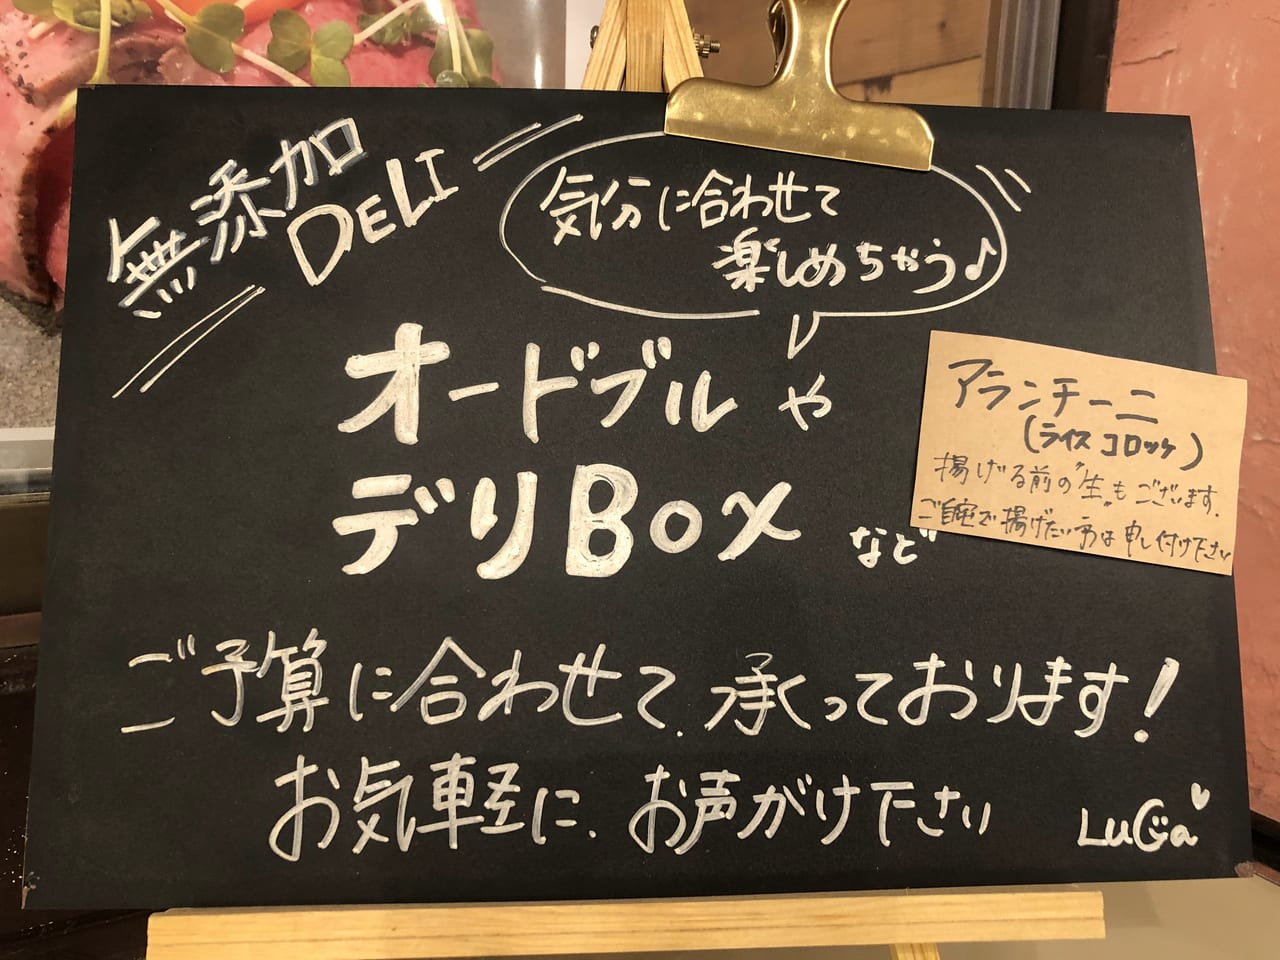 無添加
DELI
気分に合わせて
楽しめちゃう♪
オードブル や
デリBox など
アランチーニ
(ライスコロッケ)
揚げる前の"生"もございます.
ご自宅で揚げたい方は申し付け下さい
ご予算に合わせて、承っております!
お気軽に、お声がけ下さい
LuGa♡